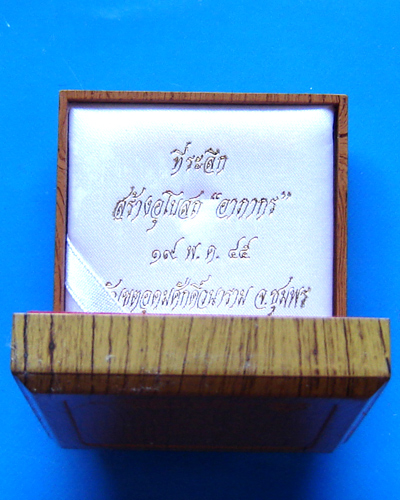 ที่ระลึก
สร้างอุโบสถ “อาภากร”
๑๙ พ.ค. ๔๕
เขตอุดมศักดิ์วนาราม จ.ชุมพร